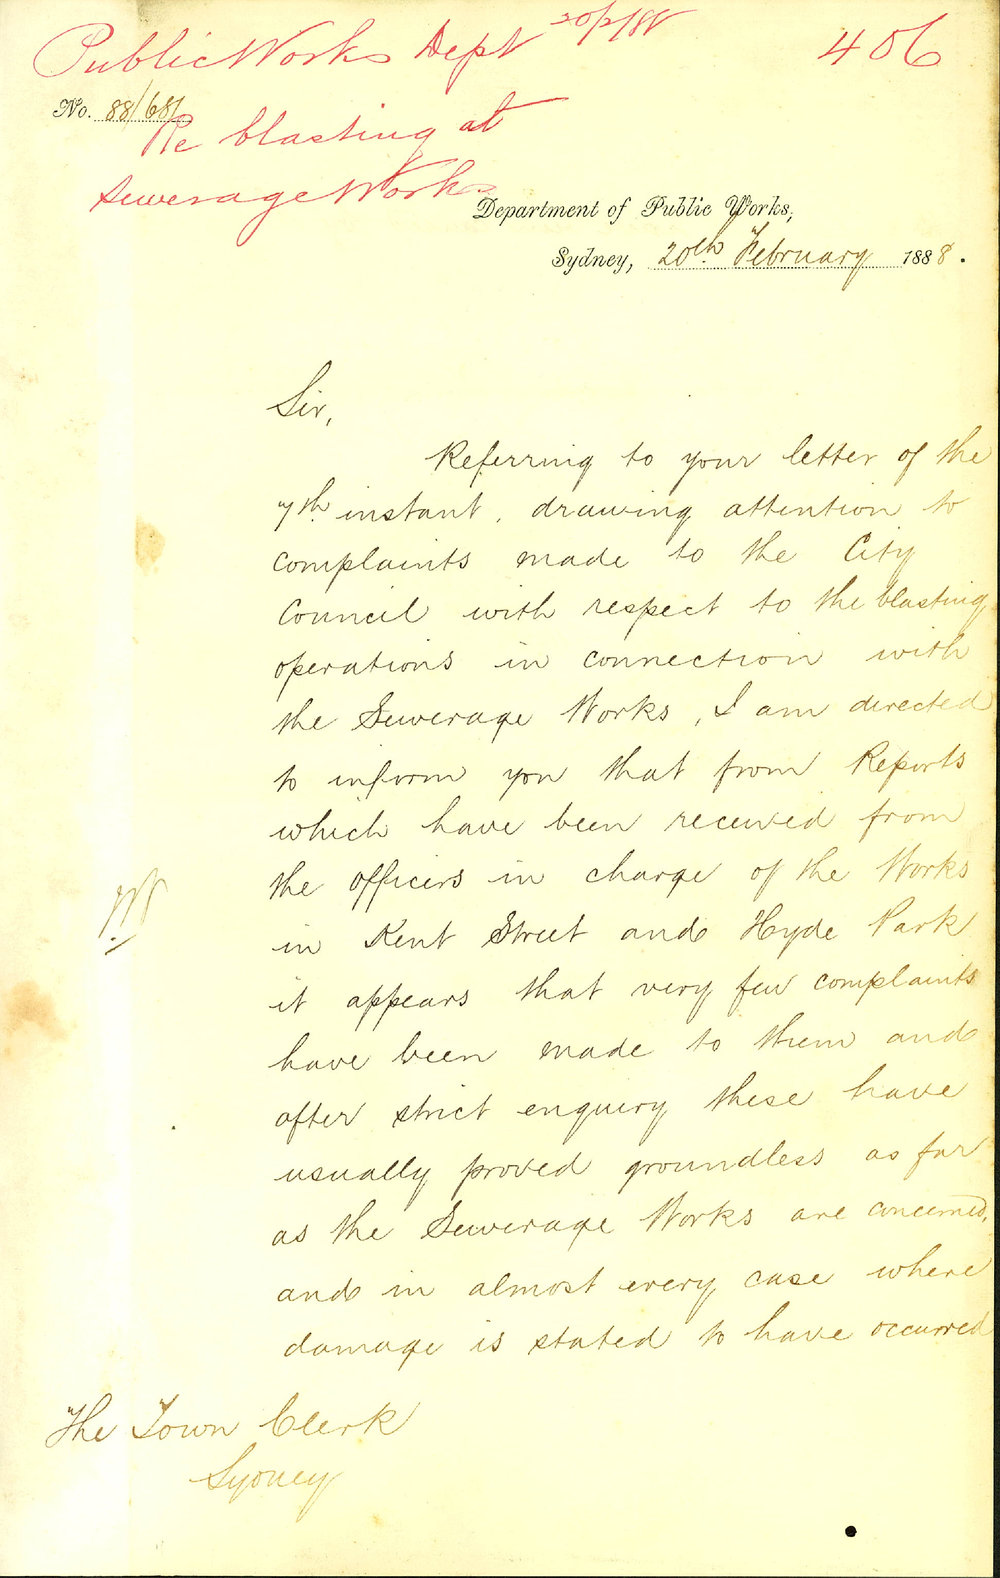 Public Works Dept 20/2/88
406
No. 88/681
Re blasting at
Sewerage Works
Department of Public Works,
Sydney, 20th February 1888.
Sir,
Referring to your letter of the
7th instant, drawing attention to
complaints made to the City
Council with respect to the blasting
operations in connection with
the Sewerage Works, I am directed
to inform you that from Reports
which have been received from
the officers in charge of the Works
in Kent Street and Hyde Park
it appears that very few complaints
have been made to them and
after strict enquiry these have
usually proved groundless as far
as the Sewerage Works are concerned,
and in almost every case where
damage is stated to have occurred
The Town Clerk
Sydney